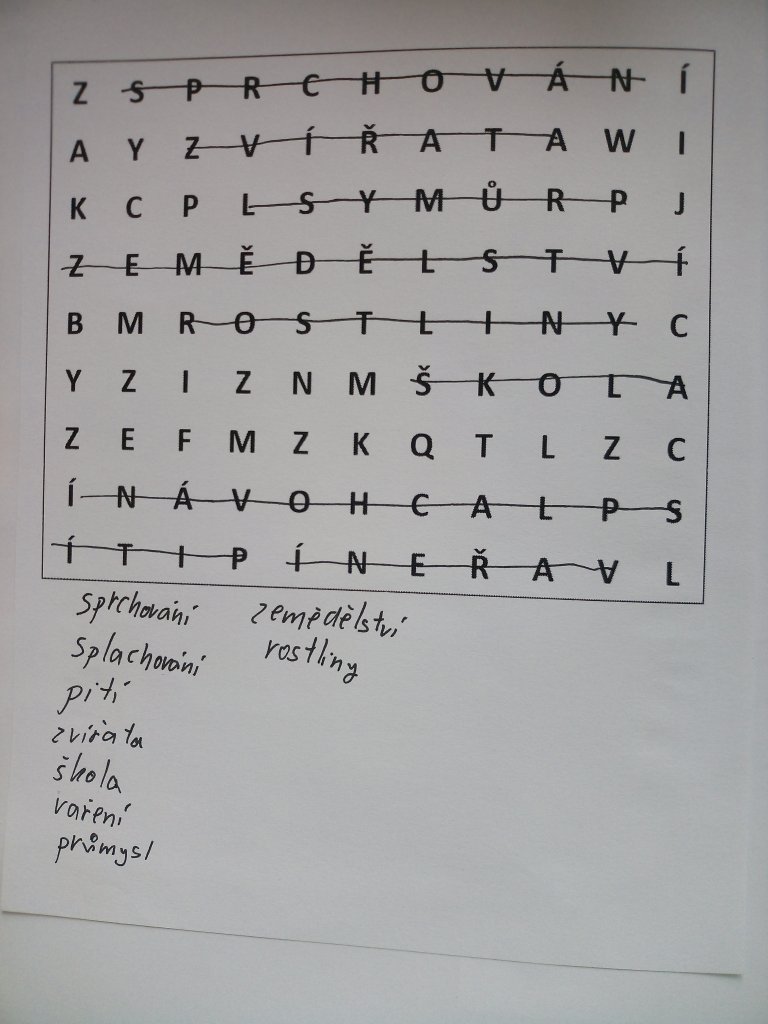 Z S P R C H O V Á N Í
A Y Z V Í Ř A T A W I
K C P L S Y M Ů R P J
Z E M Ě D Ě L S T V Í
B M R O S T L I N Y C
Y Z I Z N M Š K O L A
Z E F M Z K Q T L Z C
Í N Á V O H C A L P S
Í T I P Í N E Ř A V L
sprchování zemědělství
splachování rostliny
pití
zvířata
škola
vaření
průmysl